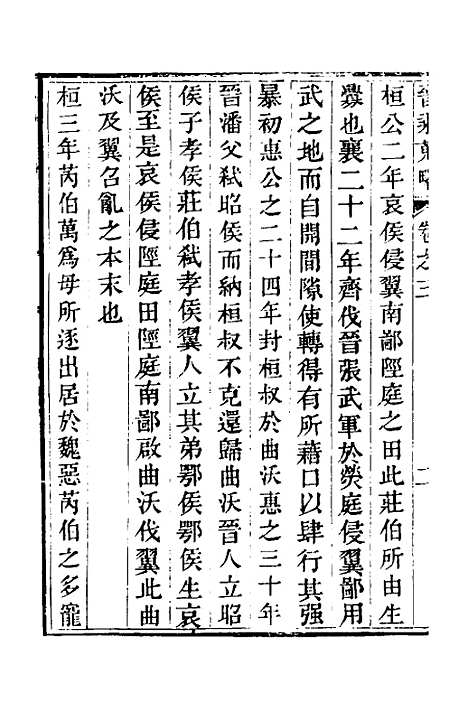 晉乘蒐略 卷之三 二
桓公二年哀侯侵翼南鄙陘庭之田此莊伯所由生
釁也襄二十二年齊伐晉張武軍於熒庭侵翼鄙用
武之地而自開間隙使轉得有所藉口以肆行其强
暴初惠公之二十四年封桓叔於曲沃惠之三十年
晉潘父弑昭侯而納桓叔不克還歸曲沃晉人立昭
侯子孝侯莊伯弑孝侯翼人立其弟鄂侯鄂侯生哀
侯至是哀侯侵陘庭田陘庭南鄙啟曲沃伐翼此曲
沃及翼召亂之本末也
桓三年芮伯萬爲母所逐出居於魏惡芮伯之多寵